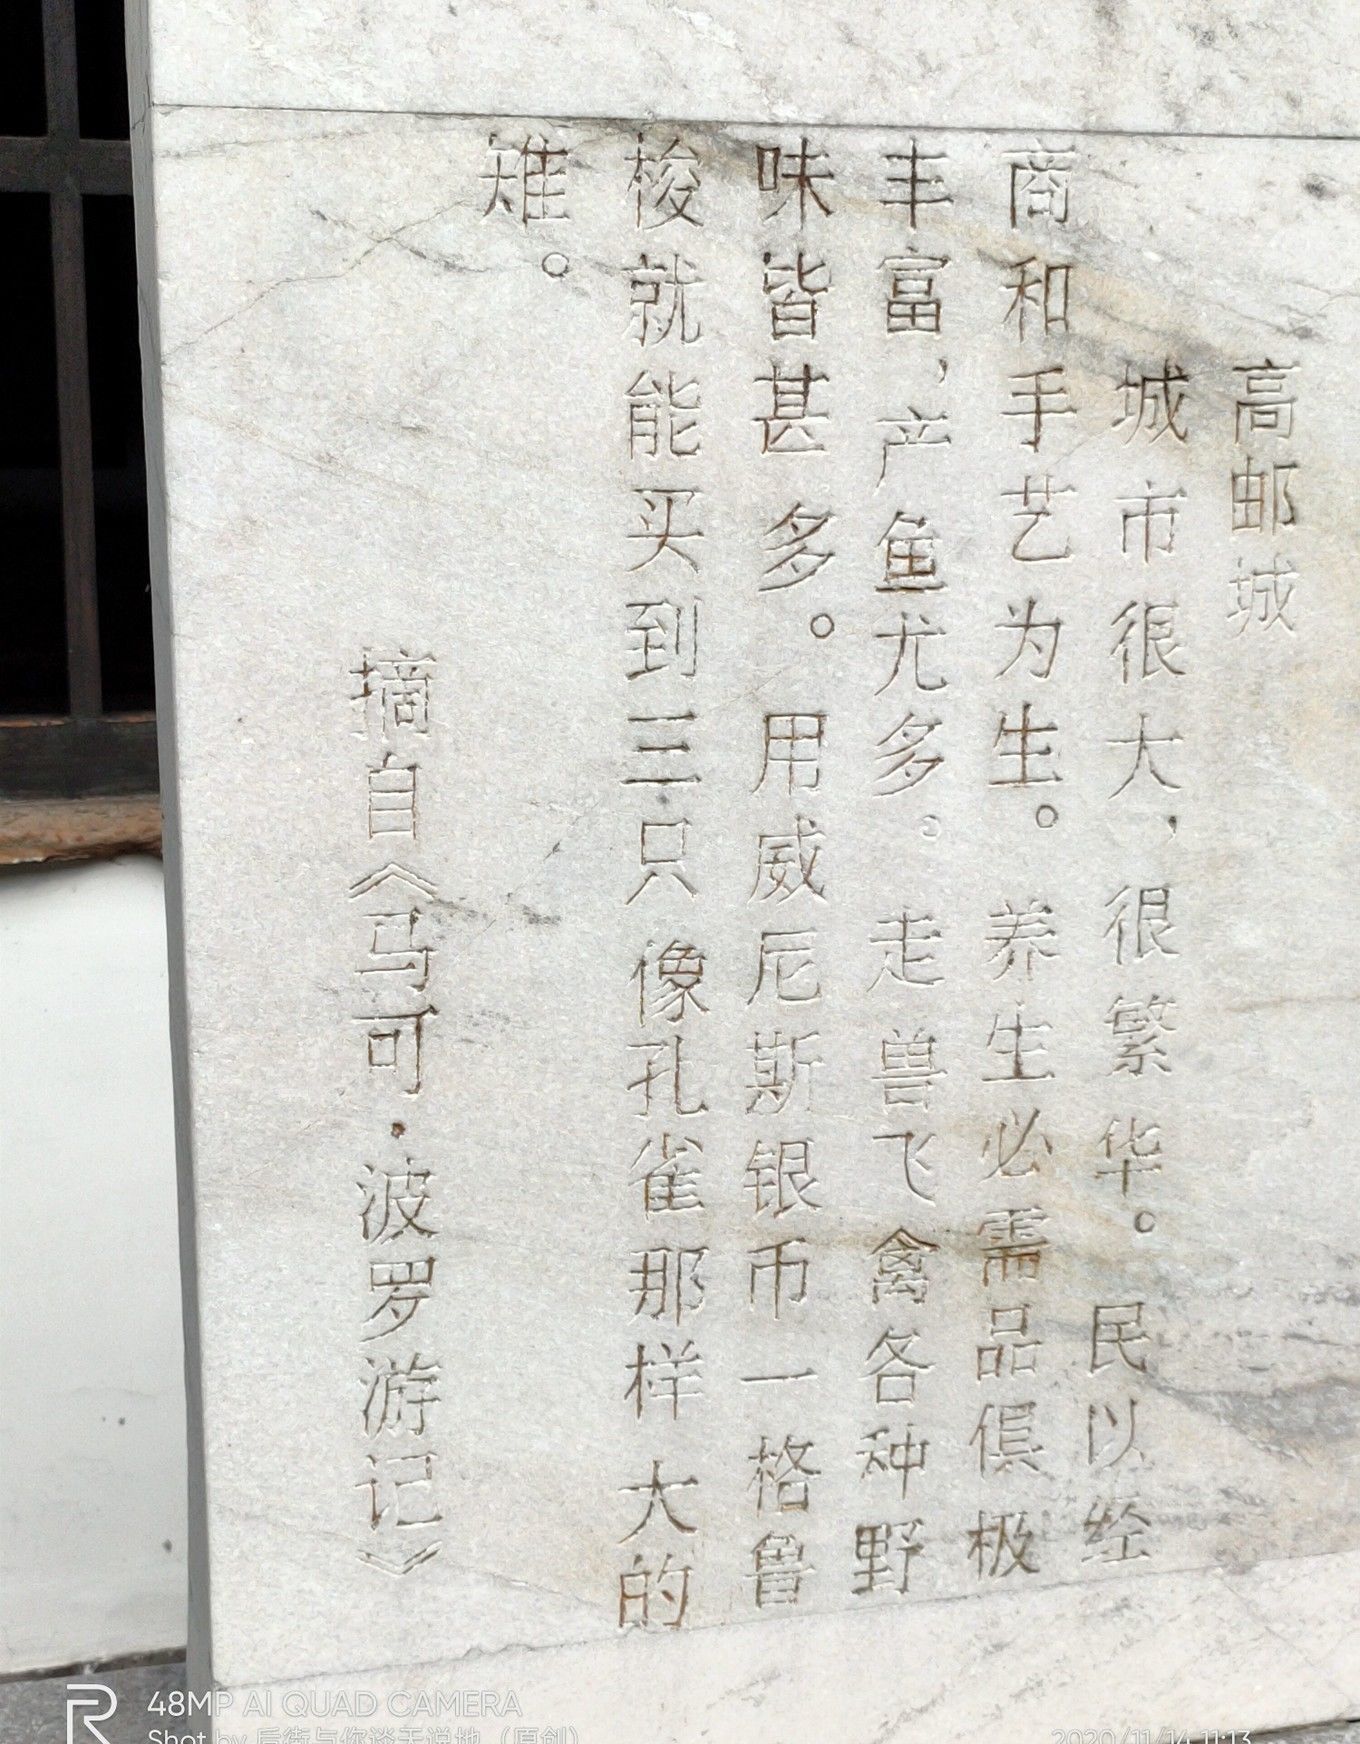 高邮城
城市很大，很繁华。民以经
商和手艺为生。养生必需品俱极
丰富，产鱼尤多。走兽飞禽各种野
味皆甚多。用威尼斯银币一格鲁
梭就能买到三只像孔雀那样大的
雉。
摘自《马可·波罗游记》
48MP AI QUAD CAMERA
Shot by 后街与你谈天说地（原创）
2020/11/14 11:13